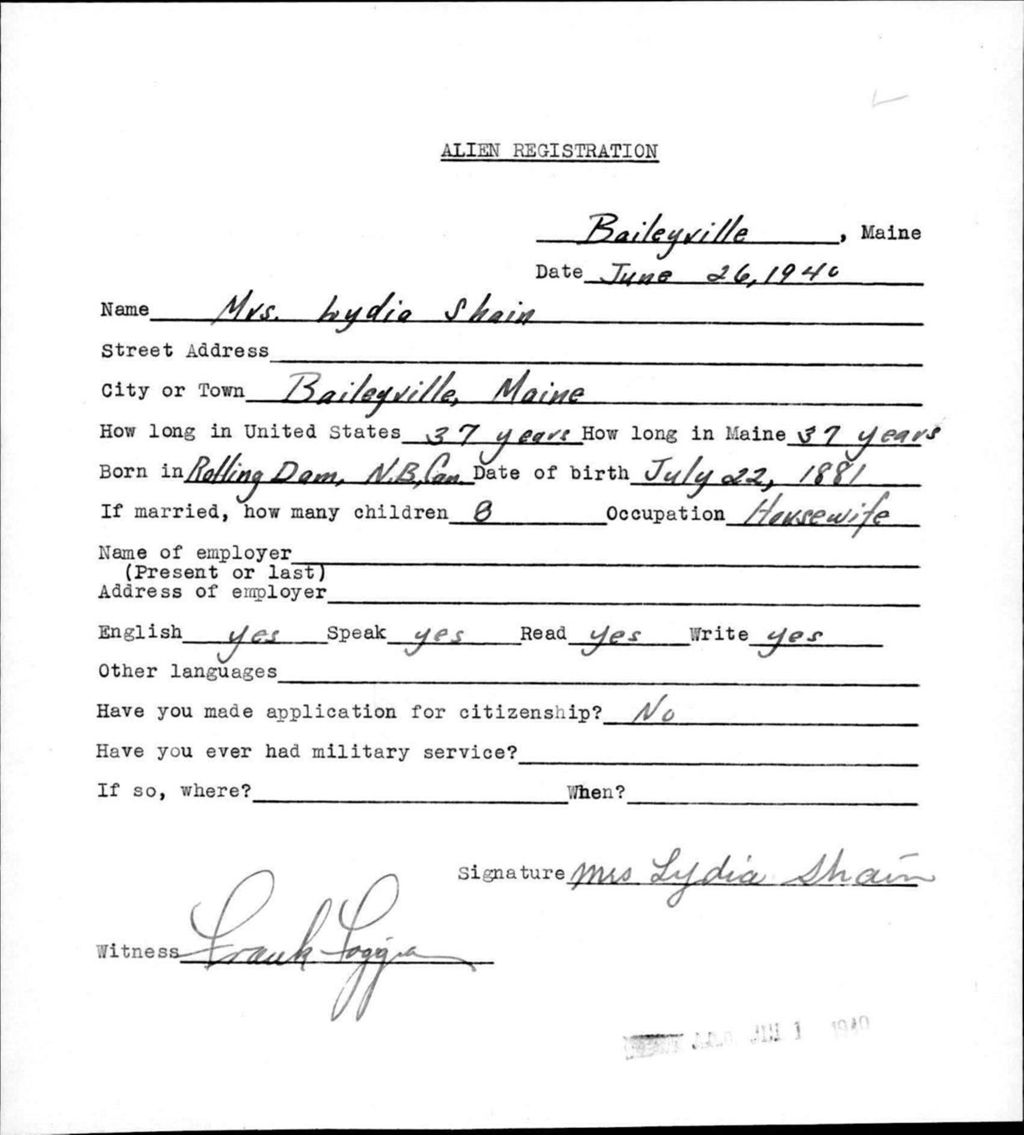 ALIEN REGISTRATION
Baileyville, Maine
Date June 26, 1940
Name Mrs. Lydia Shain
Street Address
City or Town Baileyville, Maine
How long in United States 37 years How long in Maine 37 years
Born in Rolling Dam, N.B, Can. Date of birth July 22, 1881
If married, how many children 8 Occupation Housewife
Name of employer
(Present or last)
Address of employer
English yes Speak yes Read yes Write yes
Other languages
Have you made application for citizenship? No
Have you ever had military service?
If so, where? When?
Signature Mrs Lydia Shain
Witness Frank
1 1940